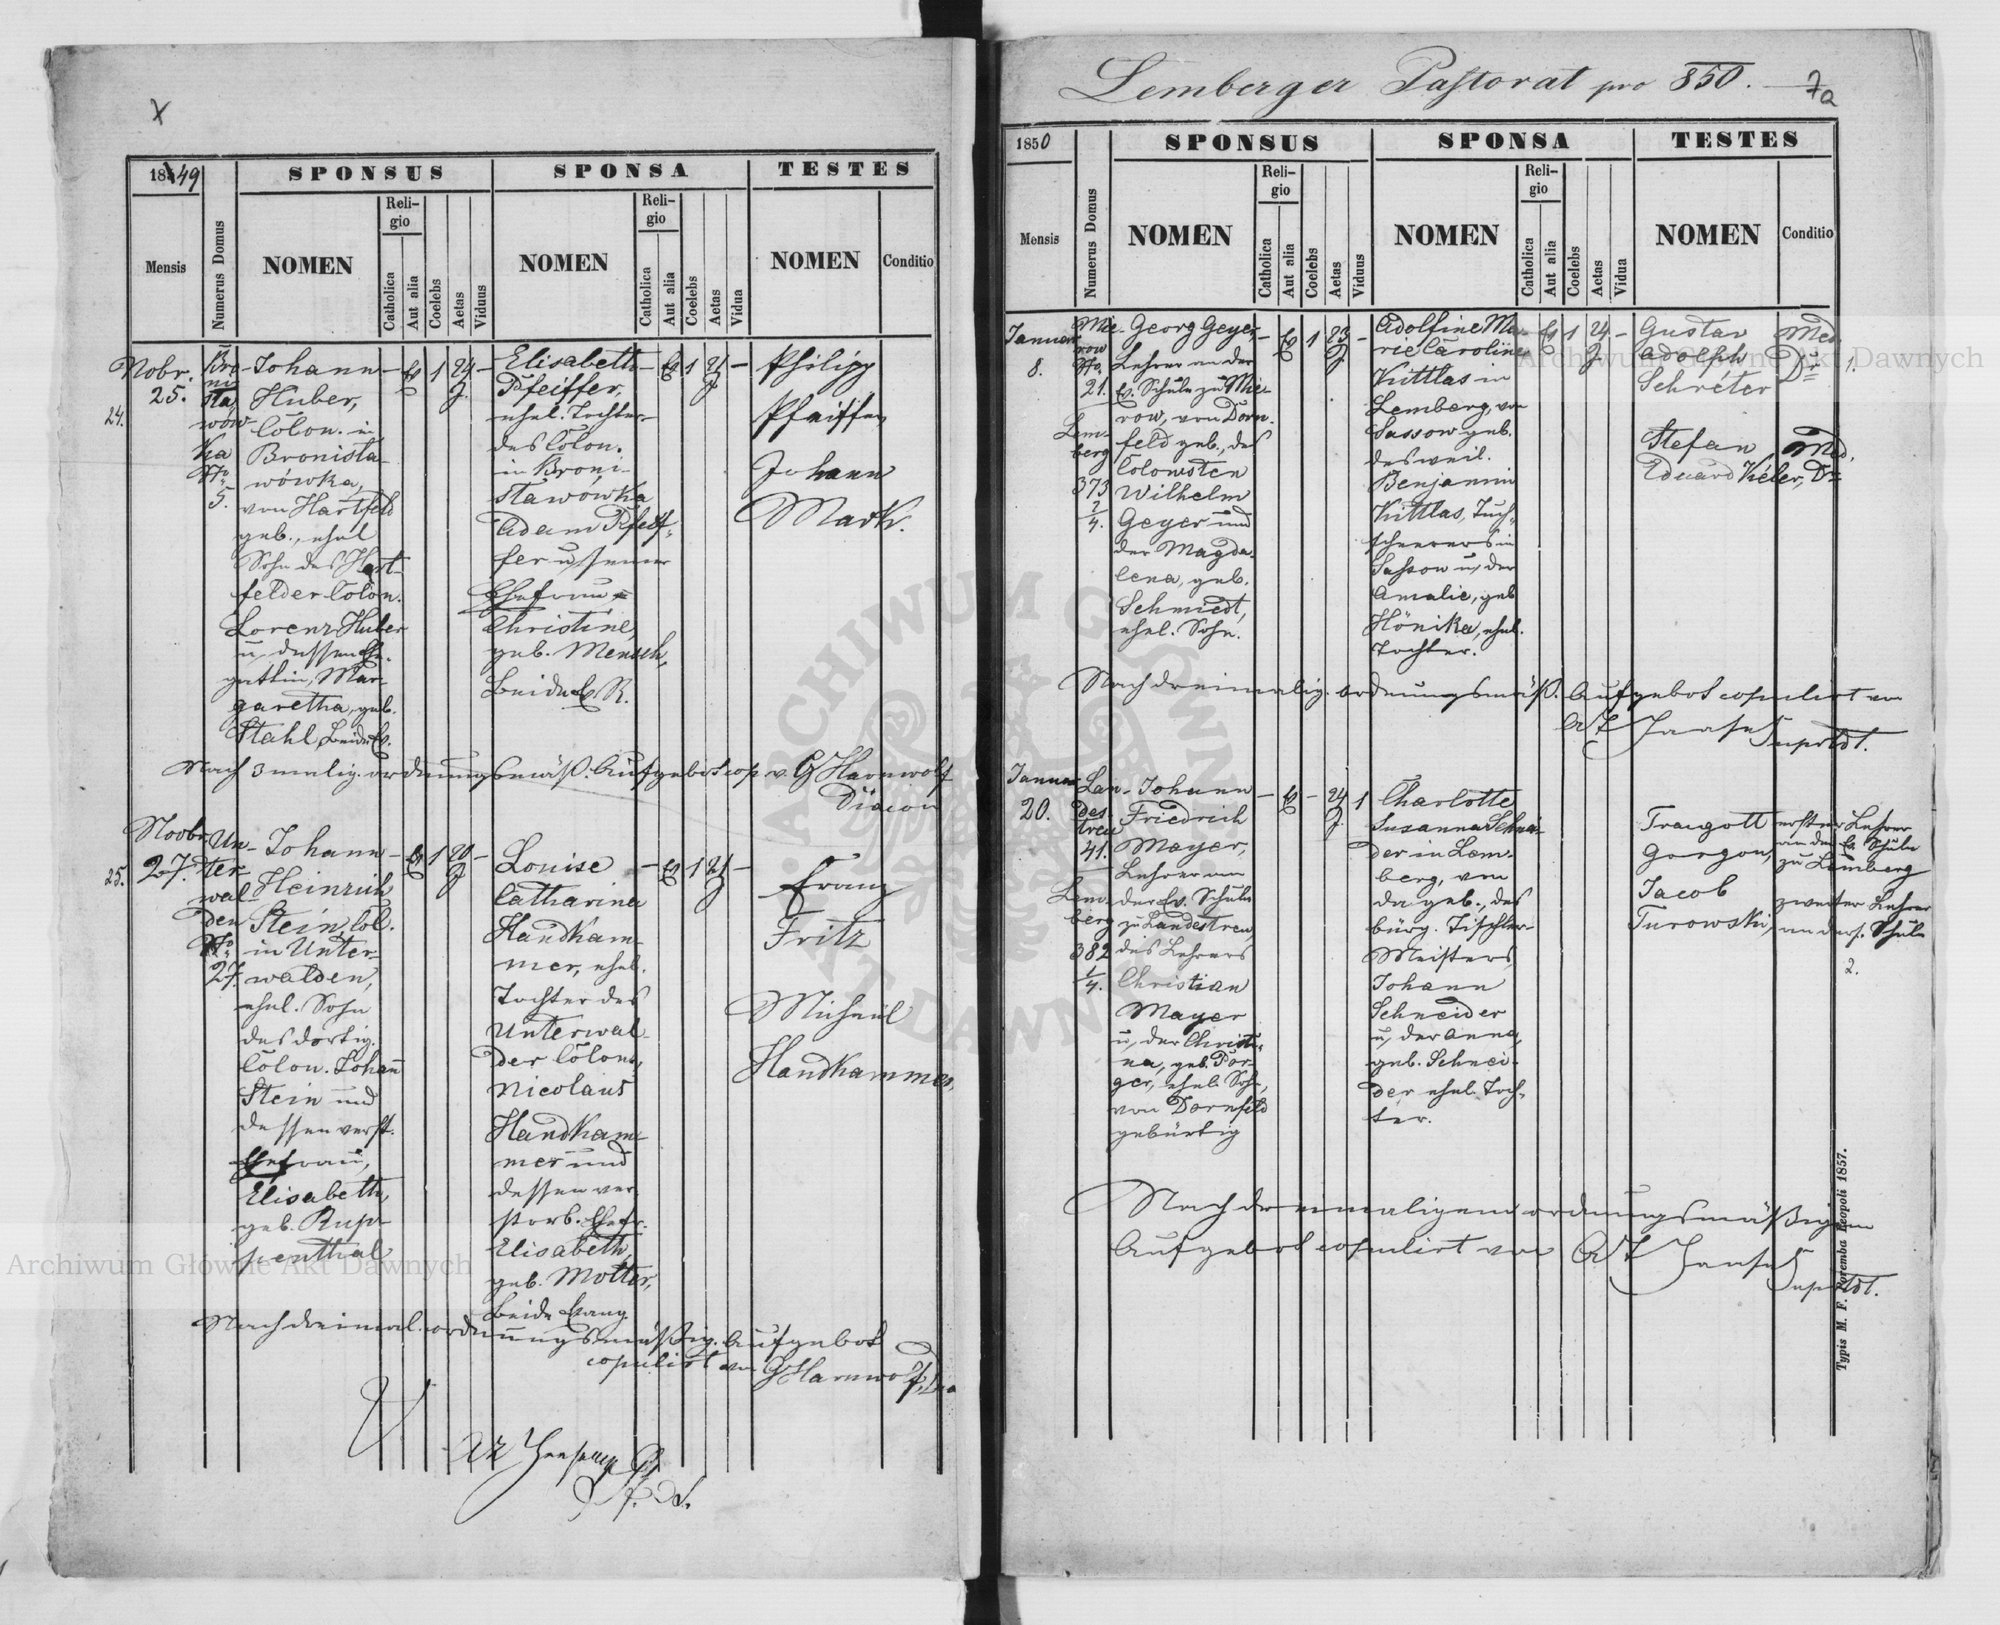 X
1849
SPONSUS
SPONSA
TESTES
Mensis
Numerus Domus
NOMEN
Religio
Catholica
Aut alia
Coelebs
Aetas
Viduus
NOMEN
Religio
Catholica
Aut alia
Coelebs
Aetas
Vidua
NOMEN
Conditio
24.
Nobr.
25.
Bro
ni
sta
wow
ka
No
5.
Johann
Huber,
Colon. in
Bronista-
wówka,
von Hartfeld
geb., ehel
Sohn des Hart-
felder Colon.
Lorenz Huber
u. dessen Ehe-
gattin, Mar-
garetha, geb.
Stahl, beide Ev.
– Ev 1 24 J. –
Elisabeth
Pfeiffer,
ehel. Tochter
des Colon.
in Broni-
stawówka
Adam Pfeif-
fer u. seiner
Ehefrau
Christine,
geb. Mensch,
beide Ev. R.
– Ev 1 21 J –
Philipp
Pfeiffer
Johann
Mark.
Nach 3malig. ordnungsmäß. Aufgebot cop. v. G Harnwolf
Diacon
25.
Novbr.
27.
Un-
ter
wal-
den
No
27.
Johann
Heinrich
Stein, Col.
in Unter-
walden,
ehel. Sohn
des dortig.
Colon. Johann
Stein und
dessen verst.
Ehefrau,
Elisabeth,
geb. Rup-
penthal
– Ev 1 20 J –
Louise
Catharina
Handkam-
mer, ehel.
Tochter des
Unterwal-
der Colons,
Nicolaus
Handkam-
mer und
dessen ver-
storb. Ehefr.
Elisabeth,
geb. Motter,
beide Evang.
– Ev 1 21 J –
Franz
Fritz
Michael
Handkammer.
Nach dreimal. ordnungsmäßig. Aufgebot
copulirt von G Harnwolf, Dia
Lemberger Pastorat pro 850.
7a
1850
SPONSUS
SPONSA
TESTES
Mensis
Numerus Domus
NOMEN
Religio
Catholica
Aut alia
Coelebs
Aetas
Viduus
NOMEN
Religio
Catholica
Aut alia
Coelebs
Aetas
Vidua
NOMEN
Conditio
Januar
8.
Mie-
row
No.
21.
Lem-
berg
373
2/4.
Georg Geyer,
Lehrer an der
Ev. Schule zu Mie-
row, von Dorn-
feld geb., des
Colonisten
Wilhelm
Geyer und
der Magda-
lena, geb.
Schmiedt,
ehel. Sohn.
– Ev 1 23 J –
Adolfine Ma-
rie Caroline
Kittlas in
Lemberg, von
Sassow geb.
des weil.
Benjamin
Kittlas, Tuch-
scherers in
Sassow u. der
Amalie, geb
Hönika, ehel.
Tochter.
Ev 1 24 J –
Gustav
Adolph
Schreter
Med
Dr
1.
Stefan
Eduard Kéler,
Med.
Dr
Nach dreimalig. ordnungsmäß. Aufgebot copulirt von
Suptdt.
Januar
20.
Lan-
des-
treu
41.
Lem-
berg
382
1/4.
Johann
Friedrich
Mayer,
Lehrer an
der Ev. Schule
zu Landestreu,
des Lehrers
Christian
Mayer
u. der Christi-
na, geb. Por-
ger, ehel. Sohn,
von Dornfeld
gebürtig
– Ev – 24 J. 1
Charlotte
Susanna Schnei-
der in Lem-
berg, von
da geb., des
bürg. Tischler-
Meisters,
Johann
Schneider
u. der Anna,
geb. Schnei-
der ehel. Toch-
ter.
Traugott
Gorgon,
erster Lehrer
an der Ev. Schule
zu Lemberg
Jacob
Turowski,
zweiter Lehrer
an ders. Schule
2.
Nach dreimaligem ordnungsmäßigem
Aufgebot copulirt von
Suptdt.
Typis M. F. Poremba Leopoli 1857.
Archiwum Główne Akt Dawnych
Archiwum Główne Akt Dawnych
ARCHIWUM GŁÓWNE AKT DAWNYCH